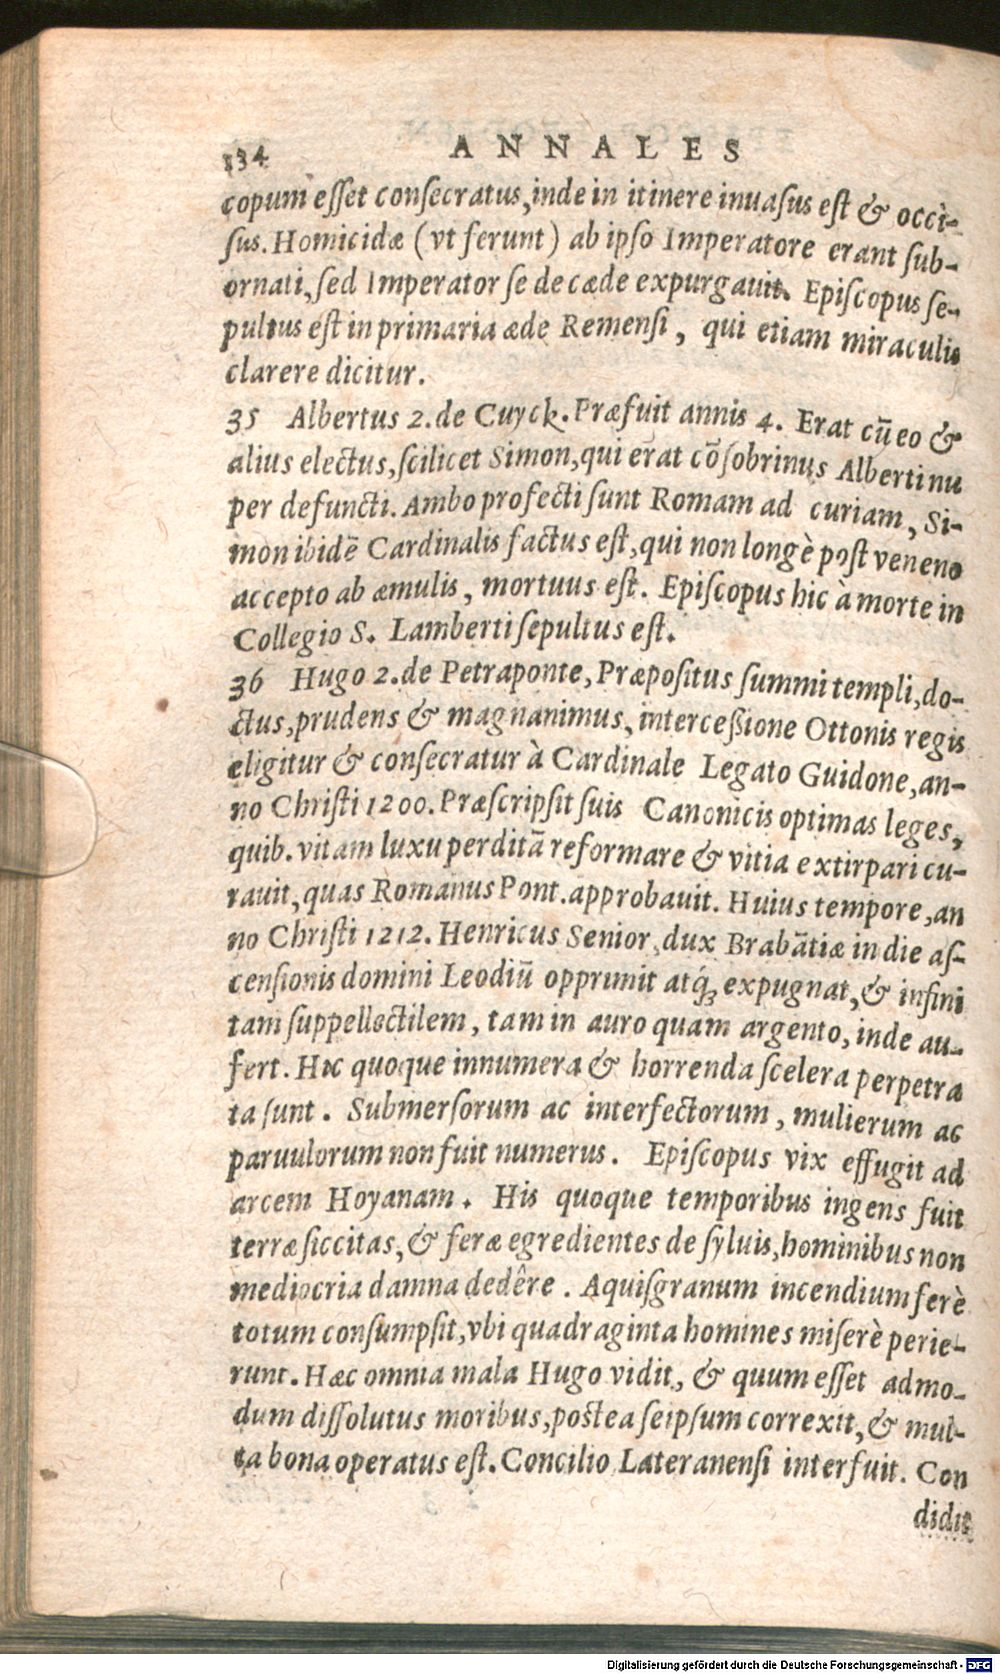 134 ANNALES
copum eſſet conſecratus, inde in itinere inuaſus eſt & occi-
ſus. Homicidæ (vt ferunt) ab ipſo Imperatore erant ſub-
ornati, ſed Imperator ſe de cæde expurgauit. Epiſcopus ſe-
pultus eſt in primaria æde Remenſi, qui etiam miraculis
clarere dicitur.
35 Albertus 2. de Cuyck. Præfuit annis 4. Erat cū eo &
alius electus, ſcilicet Simon, qui erat cōſobrinus Alberti nu
per defuncti. Ambo profecti ſunt Romam ad curiam, Si-
mon ibidē Cardinalis factus eſt, qui non longè poſt veneno
accepto ab æmulis, mortuus eſt. Epiſcopus hic à morte in
Collegio S. Lamberti ſepultus eſt.
36 Hugo 2. de Petraponte, Præpoſitus ſummi templi, do-
ctus, prudens & magnanimus, interceßione Ottonis regis
eligitur & conſecratur à Cardinale Legato Guidone, an-
no Chriſti 1200. Præſcripſit ſuis Canonicis optimas leges,
quib. vitam luxu perditā reformare & vitia extirpari cu-
rauit, quas Romanus Pont. approbauit. Huius tempore, an
no Chriſti 1212. Henricus Senior, dux Brabātiæ in die aſ-
cenſionis domini Leodiū opprimit atq́ꝫ expugnat, & infini
tam ſuppellectilem, tam in auro quam argento, inde au-
fert. Hic quoque innumera & horrenda ſcelera perpetra
ta ſunt. Submerſorum ac interfectorum, mulierum ac
paruulorum non fuit numerus. Epiſcopus vix effugit ad
arcem Hoyanam. His quoque temporibus ingens fuit
terræ ſiccitas, & feræ egredientes de ſyluis, hominibus non
mediocria damna dedêre. Aquiſgranum incendium ferè
totum conſumpſit, vbi quadraginta homines miſerè perie-
runt. Hæc omnia mala Hugo vidit, & quum eſſet admo-
dum diſſolutus moribus, poſtea ſeipſum correxit, & mul-
ta bona operatus eſt. Concilio Lateranenſi interfuit. Con
didit
Digitalisierung gefördert durch die Deutsche Forschungsgemeinschaft - DFG